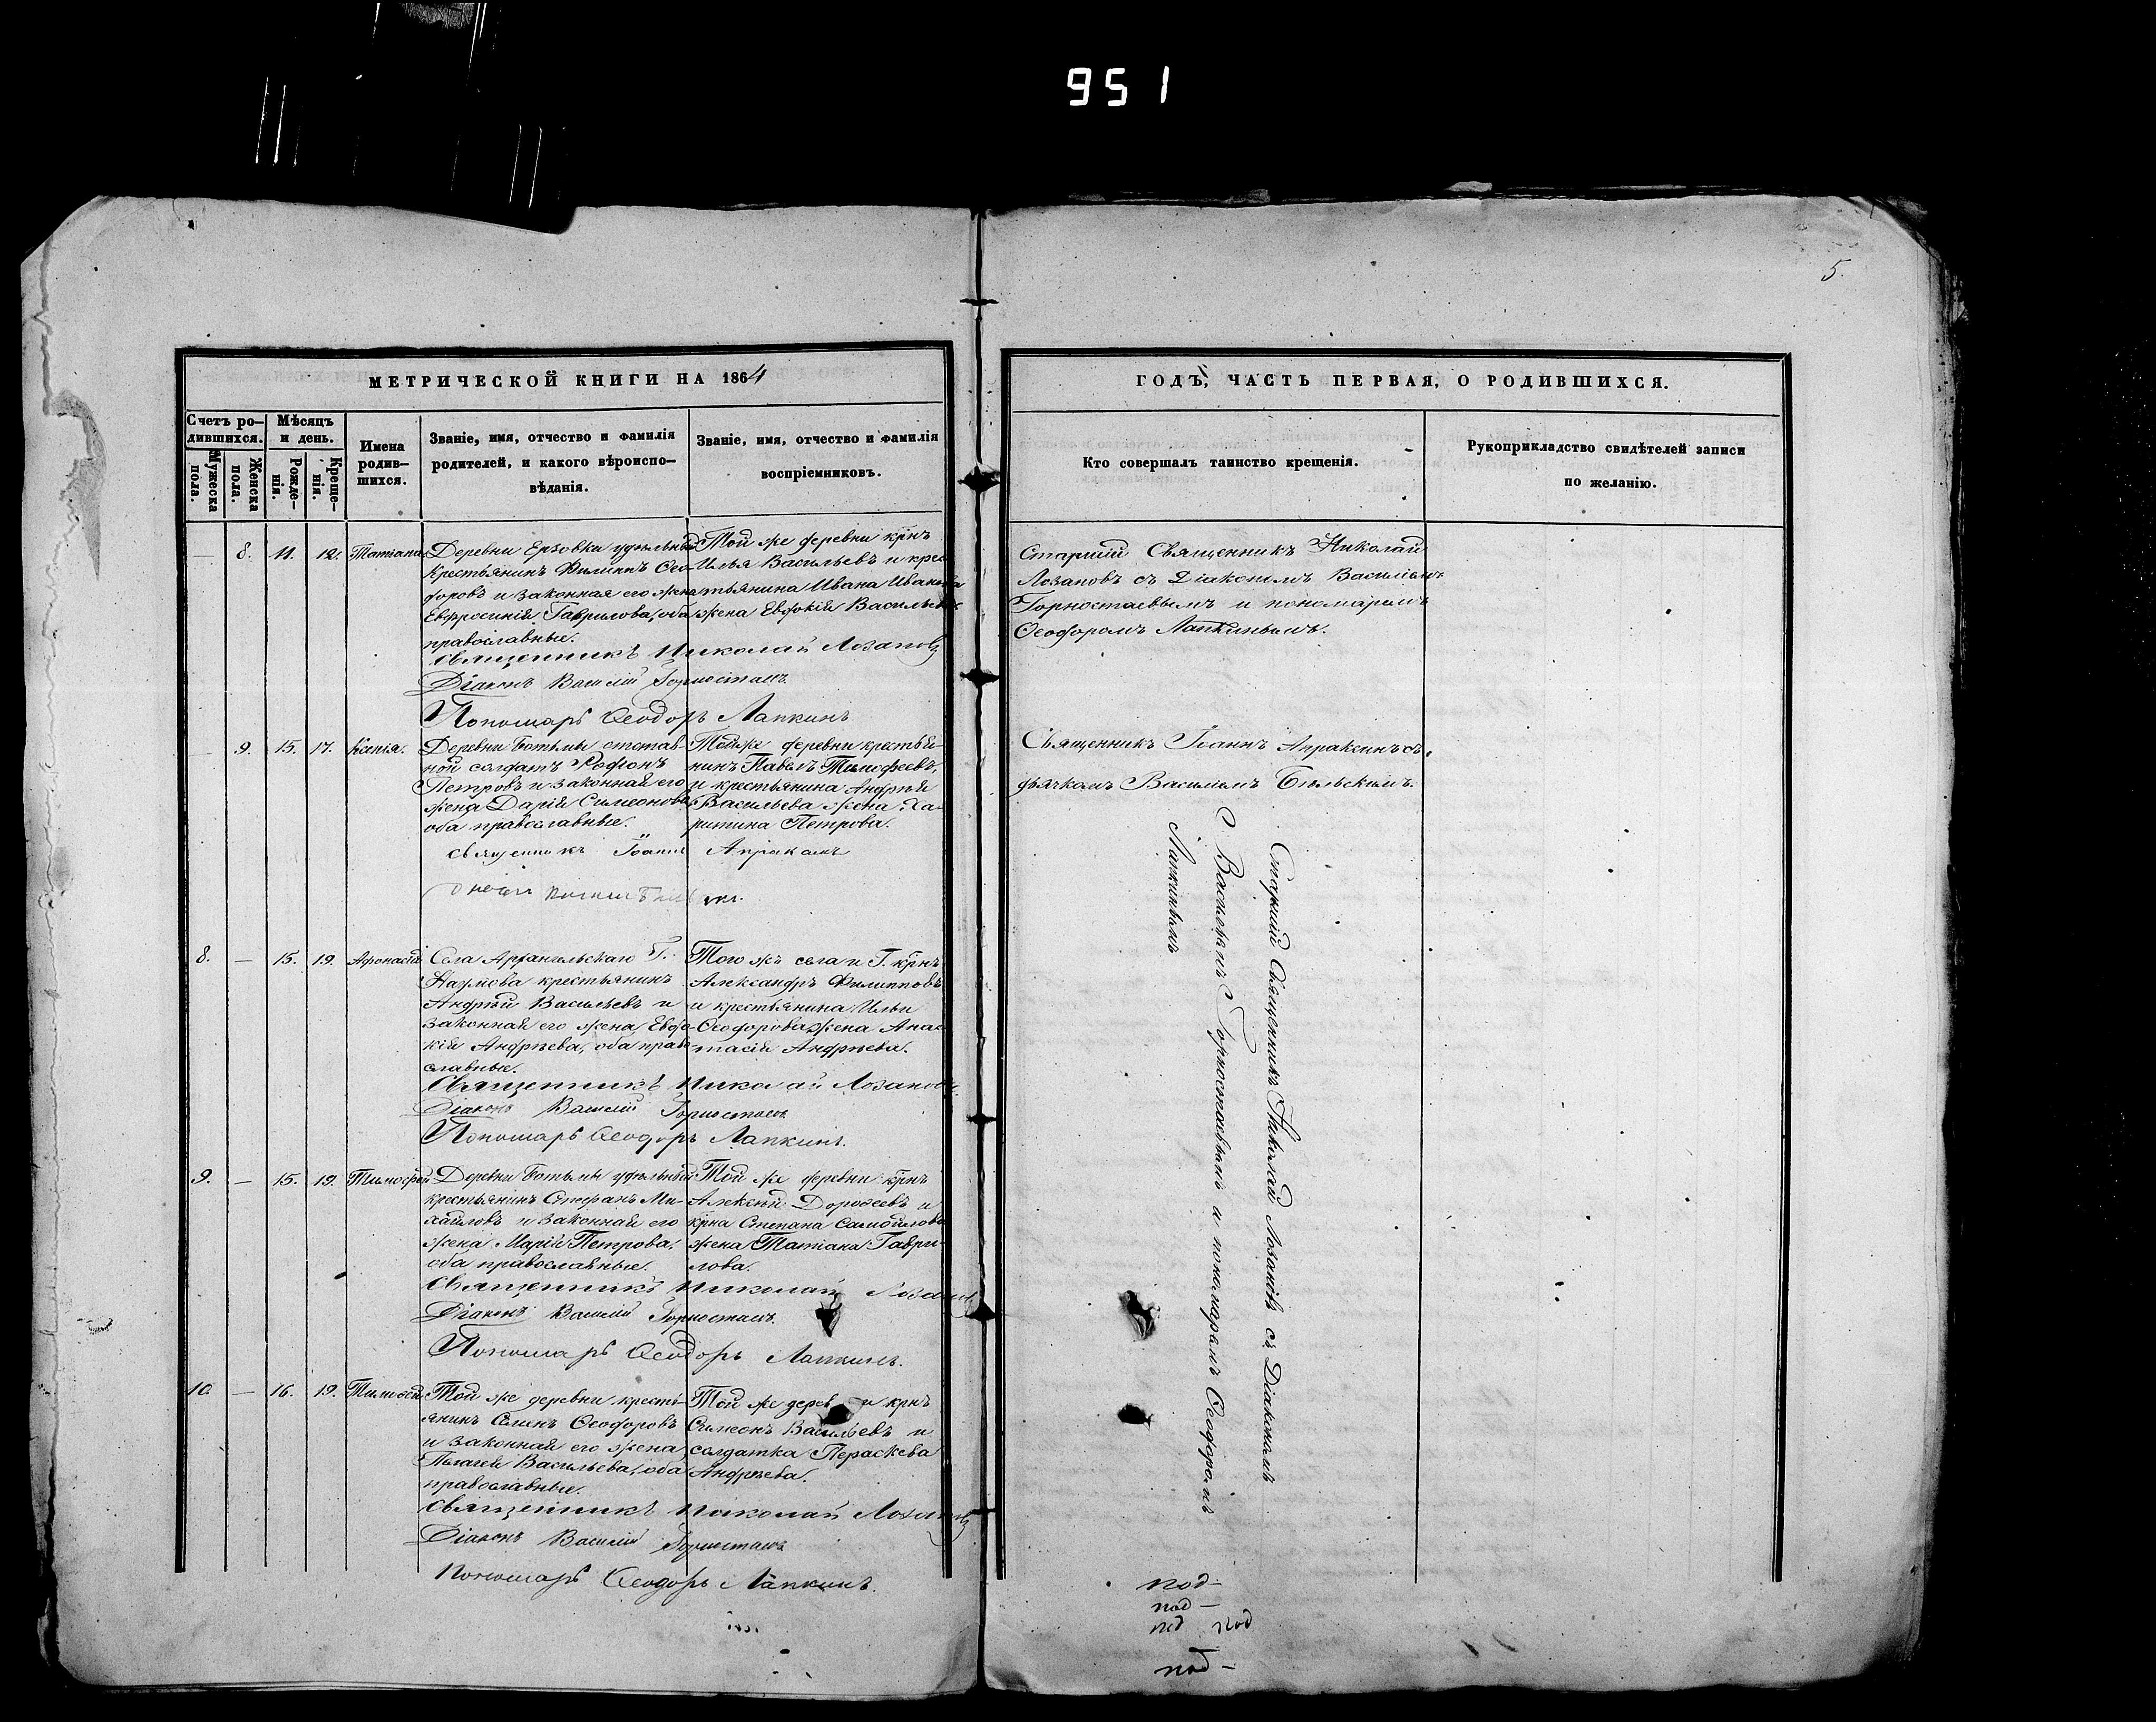 951
5.
МЕТРИЧЕСКОЙ КНИГИ НА 1864
Счетъ ро-
дившихся.
Мужеска
пола.
Женска
пола.
Мѣсяцъ
и день.
Рожде-
нія.
Креще-
нія.
Имена
родив-
шихся.
Званіе, имя, отчество и фамилія
родителей, и какого вѣроиспо-
вѣданія.
Званіе, имя, отчество и фамилія
воспріемниковъ.
— 8. 11. 12. Татіана
Деревни Ерзовки удѣльный
Крестьянинъ Филиппъ Ѳео-
доровъ и законная его жена
Евфросинія Гаврилова, оба
православные.
Той же деревни крнъ
Илья Васильевъ и кре-
стьянина Ивана Иванова
жена Евдокія Васильева
Священникъ Николай Лозановъ
Діаконъ Василій Горностаевъ
Пономарь Ѳеодоръ Лапкинъ
— 9. 15. 17. Ксенія.
Деревни Ботьмы отстав-
ной солдатъ Родіонъ
Петровъ и законная его
жена Дарія Симеонова
оба православные.
Той же деревни крестья-
нинъ Павелъ Тимофеевъ,
и крестьянина Андрея
Васильева жена Ха-
ритина Петрова.
Священникъ Іоаннъ Апраксинъ
8. — 15. 19. Афонасій
Села Архангельскаго Г.
Наумова крестьянинъ
Андрей Васильевъ и
законная его жена Евдо-
кія Андрѣева, оба право-
славные.
Того жъ села и Г. крнъ
Александръ Филипповъ
и крестьянина Ильи
Ѳеодорова жена Анас-
тасія Андрѣева.
Священникъ Николай Лозановъ
Діаконъ Василій Горностаевъ
Пономарь Ѳеодоръ Лапкинъ.
9. — 15. 19. Тимофей
Деревни Ботьмы удѣльный
крестьянинъ Стефанъ Ми-
хайловъ и законная его
жена Марія Петрова,
оба православные.
Той же деревни крнъ
Алексѣй Дорофеевъ и
крна Степана Самойлова
жена Татіана Гаври-
лова.
Священникъ Николай Лозановъ
Діаконъ Василій Горностаевъ
Пономарь Ѳеодоръ Лапкинъ.
10 — 16. 19. Тимофей
Той же деревни кресть-
янинъ Семенъ Ѳеодоровъ
и законная его жена
Пелагея Васильева, оба
православные.
Той же дерев и крнъ
Симеонъ Васильевъ и
солдатка Пераскева
Андрѣева.
Священникъ Николай Лозановъ
Діаконъ Василій Горностаевъ
Пономарь Ѳеодоръ Лапкинъ.
ГОДЪ, ЧАСТЬ ПЕРВАЯ, О РОДИВШИХСЯ.
Кто совершалъ таинство крещенія.
Рукоприкладство свидѣтелей записи
по желанію.
Старшій Священникъ Николай
Лозановъ съ Діакономъ Василіемъ
Горностаевымъ и пономаремъ
Ѳеодоромъ Лапкинымъ.
Священникъ Іоаннъ Апраксинъ съ
дьячкомъ Василіемъ Бѣльскимъ.
Старшій Священникъ Николай Лозановъ съ Діакономъ
Василіемъ Горностаевымъ и пономаремъ Ѳеодоромъ
Лапкинымъ
под-
под -
под под
под-